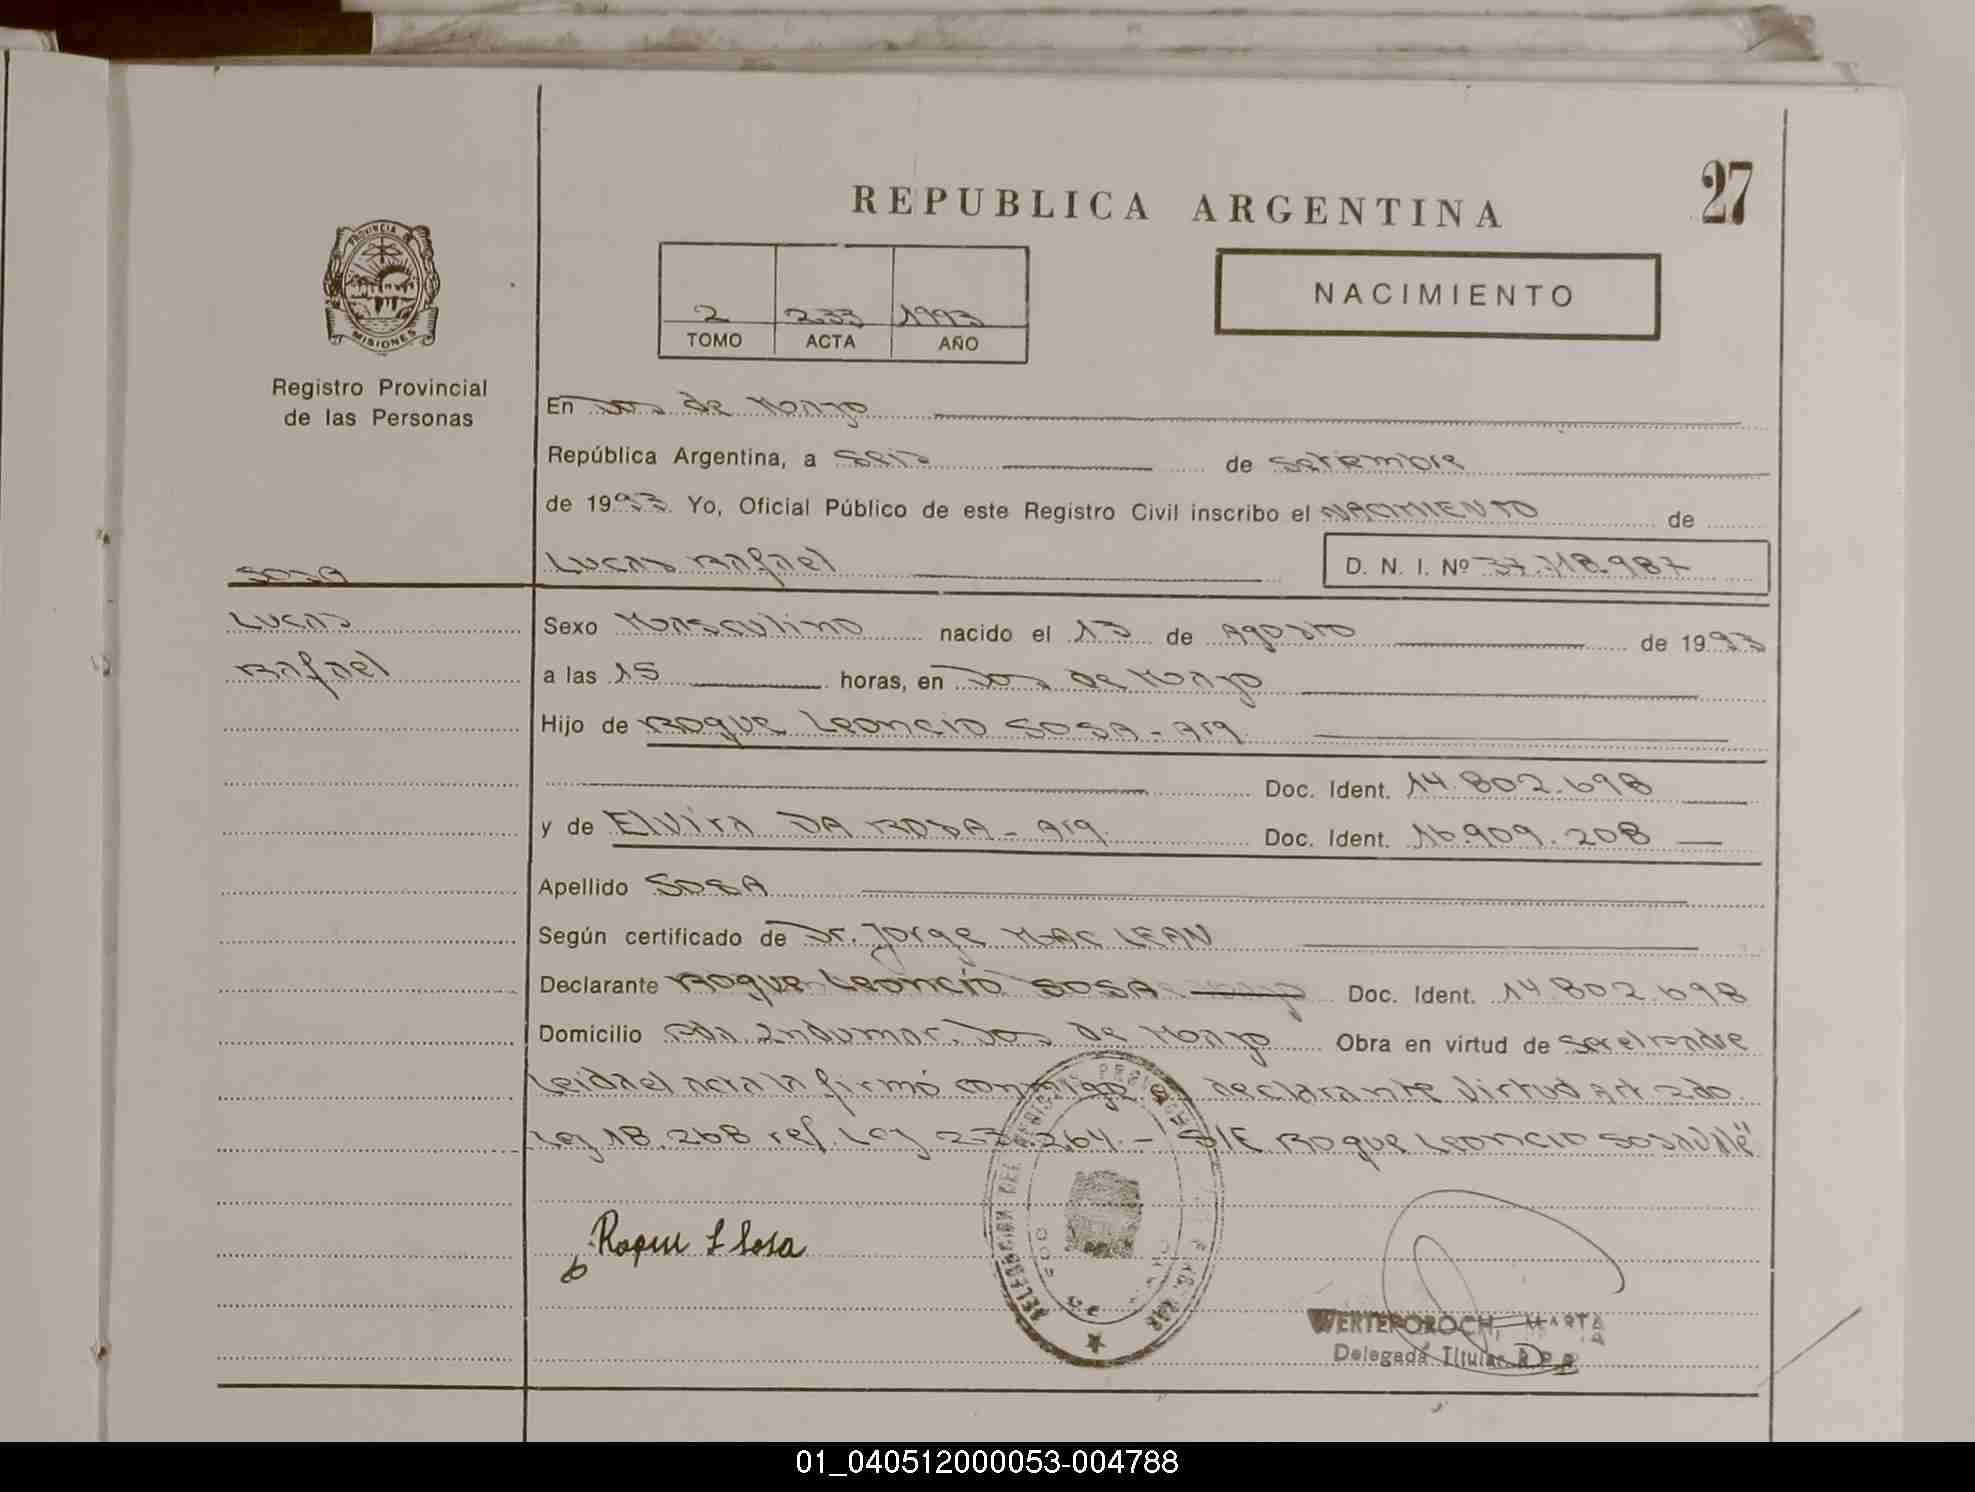 27
REPUBLICA ARGENTINA
PROVINCIA DE
MISIONES
Registro Provincial
de las Personas
NACIMIENTO
2 233 1993
TOMO ACTA AÑO
En Dos de Mayo
República Argentina, a seis de setiembre
de 1993 Yo, Oficial Público de este Registro Civil inscribo el NACIMIENTO de
SOSA
Lucas Rafael D. N. I. Nº 37.718.987
Lucas
Sexo Masculino nacido el 13 de Agosto de 1993
Rafael
a las 15 horas, en Dos de Mayo
Hijo de Roque Leoncio SOSA - Arg.
Doc. Ident. 14.802.698
y de Elvira DA ROSA - Arg. Doc. Ident. 16.909.208
Apellido SOSA
Según certificado de Dr. Jorge MAC LEAN
Declarante Roque Leoncio SOSA Doc. Ident. 14.802.698
Domicilio Dos de Mayo Obra en virtud de ser el padre
Leida el acta la firmó conmigo el declarante virtud Art. 2do.
Ley 18.268 ref. Ley 23.264.- S/E Roque Leoncio SOSA Vale
Roque L Sosa
DELEGACION DEL REGISTRO
WERTEPOROCH, MARTA
Delegada Titular R.P.P.
01_040512000053-004788